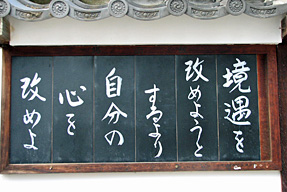 境遇を
改めようと
するより
自分の
心を
改めよ